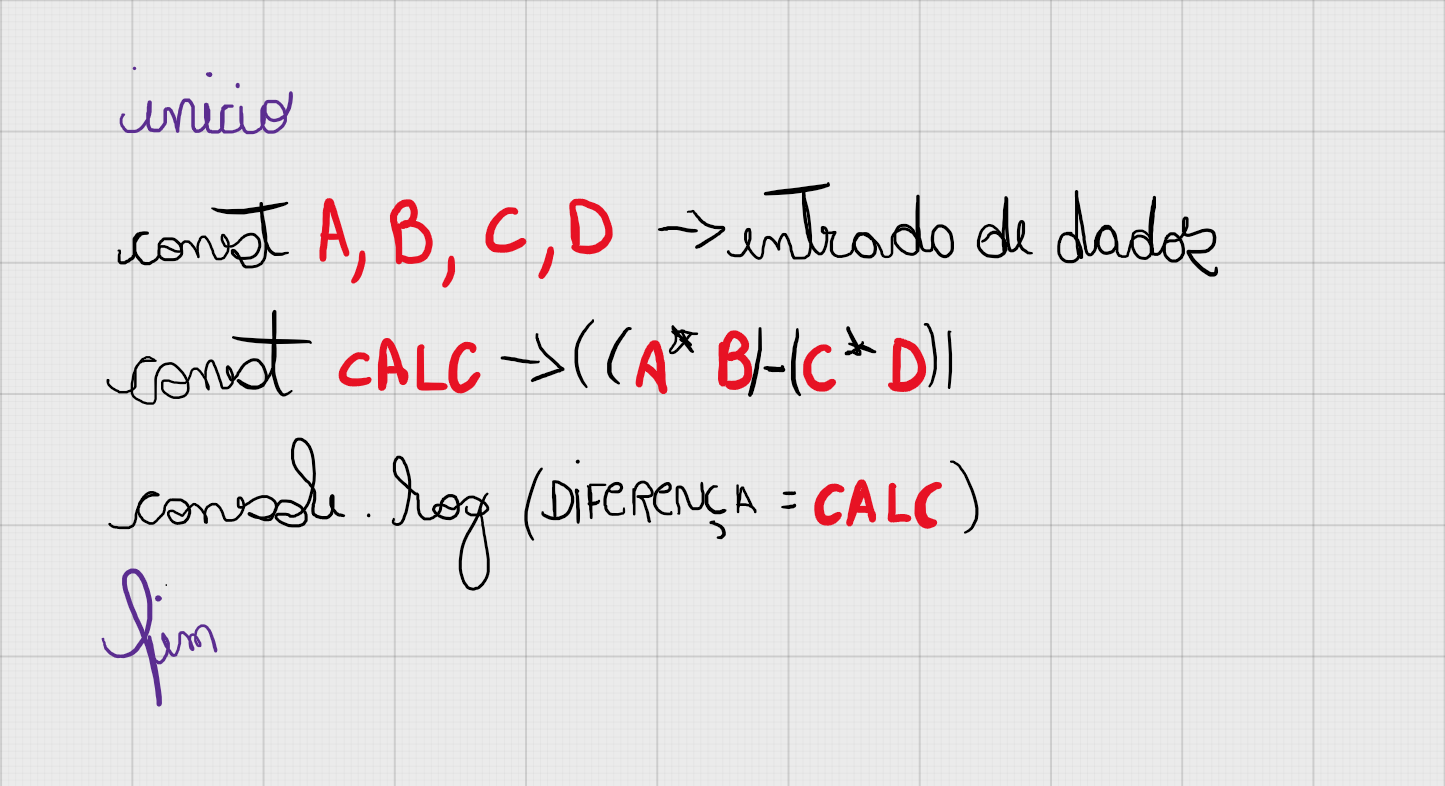 inicio
const A, B, C, D → entrada de dados
const CALC → ((A * B) - (C * D))
console.log (DIFERENÇA = CALC)
fim